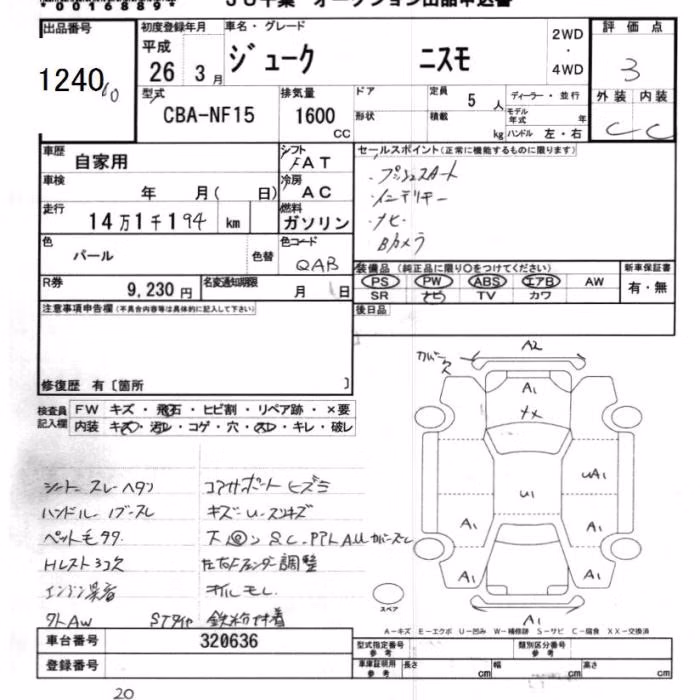 出品番号
1240
初度登録年月
平成
26 3月
車名・グレード
ジューク ニスモ
2WD
・
4WD
評価点
3
外装 内装
C C
型式
CBA-NF15
排気量
1600
CC
ドア
形状
定員
5 人
積載
kg
ディーラー・並行
モデル
年式 年
ハンドル 左・右
車歴
自家用
シフト
FAT
車検
年 月( 日)
冷房
AC
走行
14万1千194 km
燃料
ガソリン
色
パール
色替
色コード
QAB
R券
9,230円
名変通知期限
月 日
セールスポイント(正常に機能するものに限ります)
・プッシュスタート
・インテリキー
・ナビ
・Bカメラ
装備品(純正品に限り○をつけてください)
PS PW ABS エアB AW
SR ナビ TV カワ
新車保証書
有・無
後日品
注意事項申告欄(不具合内容等は具体的に記入して下さい)
修復歴 有〔箇所 〕
検査員
記入欄
FW キズ・飛石・ヒビ割・リペア跡・×要
内装 キズ・汚レ・コゲ・穴・スレ・キレ・破レ
シート スレ ヘタリ
ハンドル
ペット毛
Hレスト
エンジン異音
タトAW STタイヤ
コアサポート ヒズミ
キズ
調整
オイルモレ
鉄粉付着
カバー
A2
A1
ナメ
U1
UA1
A1
A1
A1
A1
A1
スペア
A-キズ E-エクボ U-凹み W-補修跡 S-サビ C-腐食 XX-交換済
車台番号
320636
登録番号
型式指定番号
参考
類別区分番号
参考
車庫証明用
参考
長さ cm
幅 cm
高さ cm
20